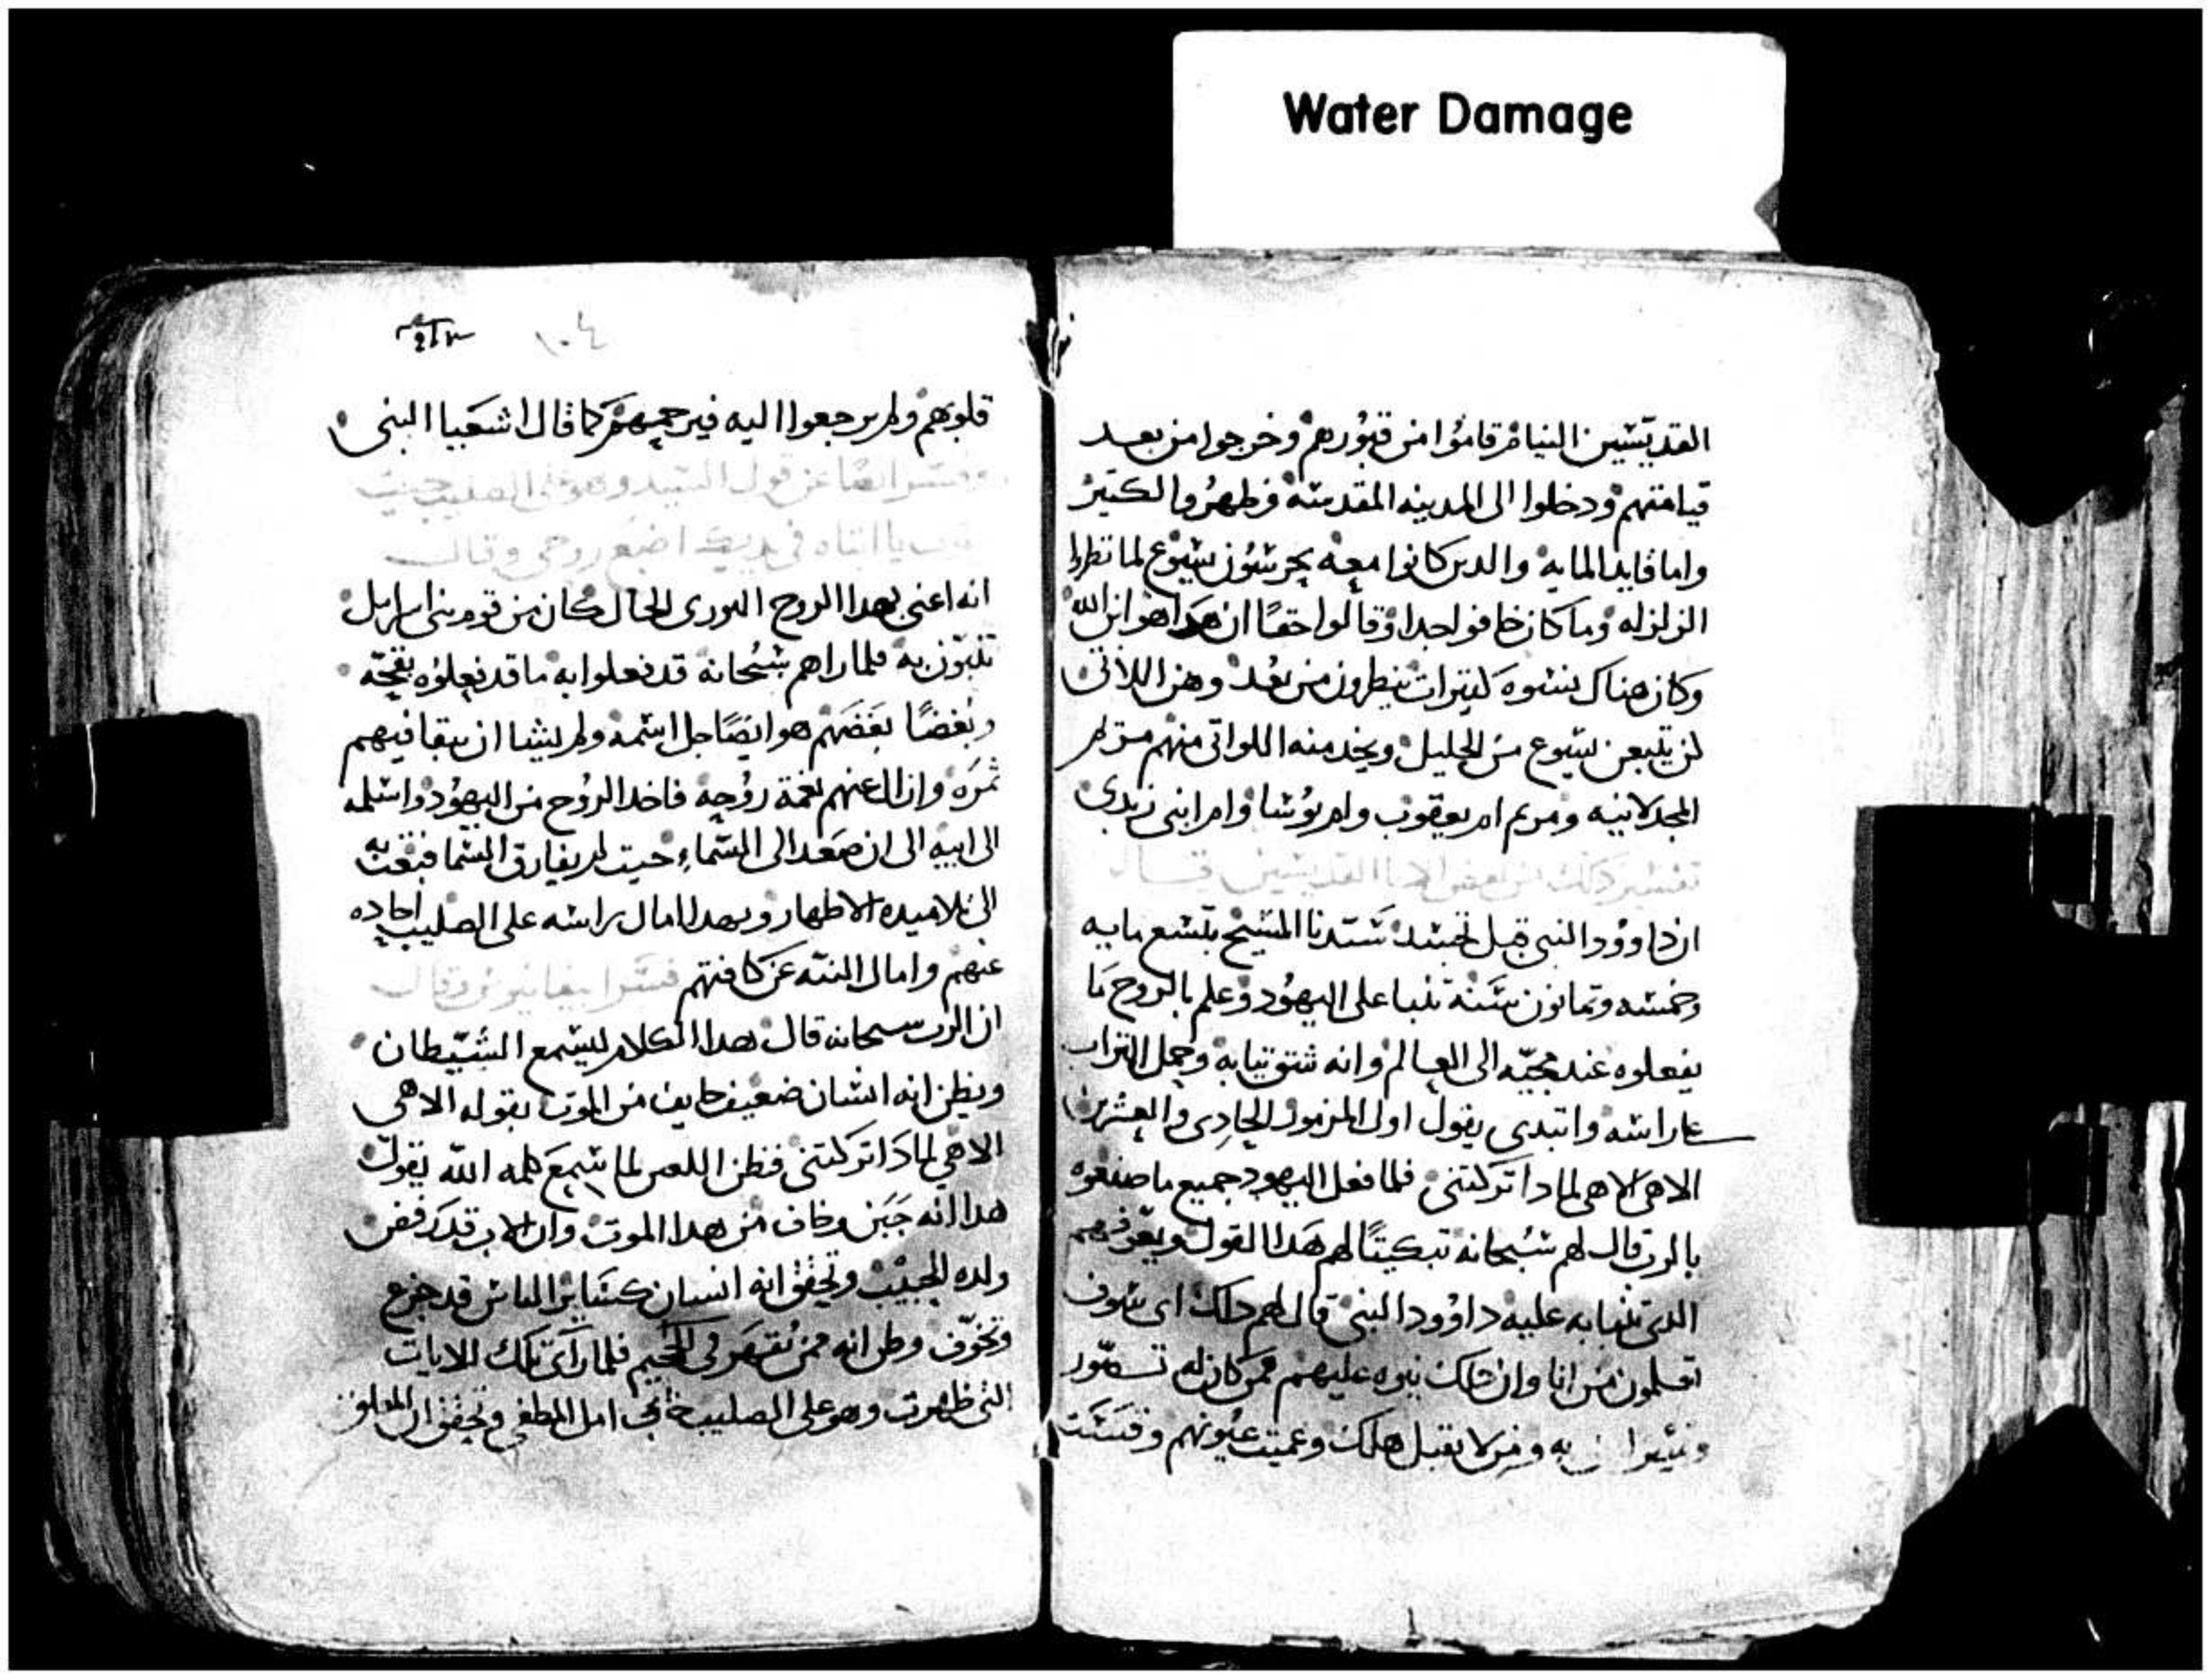 Water Damage
القديسين النيام قاموا من قبورهم وخرجوا من بعد
قيامتهم ودخلوا الى المدينه المقدسه فظهروا لكتير
واما قايد المايه والدين كانوا معه يحرسون يسوع لما نظروا
الزلزله وما كان خافوا جدا وقالوا حقا ان هدا هو ابن الله
وكان هناك نسوه كتيرات ينظرون من بعد وهن اللاتى
كن يتبعن يسوع من الجليل ويخدمنه اللواتى منهم مريم
المجدلانيه ومريم ام يعقوب وام يوسا وام ابنى زبدى
تفسير دلك من بعض الابا القديسين قال
ان داوود النبى قبل تجسد سيدنا المسيح بتسع مايه
وخمسه وتمانون سنة تنبا على اليهود وعلم بالروح ما
يفعلوه عند مجيه الى العالم وانه شق تيابه وجعل التراب
على راسه وابتدى يقول اول المزمور الحادى والعشرين
الاهى الاهى لمادا تركتنى فلما فعل اليهود جميع ما صنعوه
بالرب قال لهم سبحانه تبكيتا لهم هدا القول ويعرفهم
الدى تنبا به عليه داوود النبى قال لهم دلك اى سوف
تعلمون من انا وان دلك عليهم فمن كان له
به ومن لا يقبل هلك وعميت عيونهم وقست
١٠٤
قلوبهم ولم يرجعوا اليه فيرحمهم كما قال اشعيا النبى
وفسر ايضا عن قول السيد وهو على الصليب حيث
قال يا ابتاه فى يديك اضع روحى وقال
انه اعنى بهدا الروح النورى الحال كان من قوم بنى اسرايل
تنبون به فلما راهم سبحانه قد فعلوا به ما قد فعلوه بقحه
وبغضا بغضهم هو ايضا جل اسمه ولم يشا ان يبقا فيهم
ثمره وازال عنهم نعمة روحه فاخد الروح من اليهود واسلمه
الى ابيه الى ان صعد الى السماء حيت لم يفارق السما فبعت به
الى تلاميده الاطهار وبهدا امال راسه على الصليب احاده
عنهم وامال البته عن كافتهم فسر ابيفانيوس وقال
ان الرب سبحانه قال هدا الكلام ليسمع الشيطان
ويظن انه انسان ضعيف خايف من الموت بقوله الاهى
الاهى لمادا تركتنى فظن اللعين لما سمع كلمه الله يقول
هدا انه جبن وخاف من هدا الموت وان الاب قد رفض
ولده الحبيب وتحقق انه انسان كساير الناس قد جزع
وتخوف وظن انه ممن يقهر فى الجحيم فلما راى تلك الايات
التى ظهرت وهو على الصليب خاب امل الطغى وتحقق ان